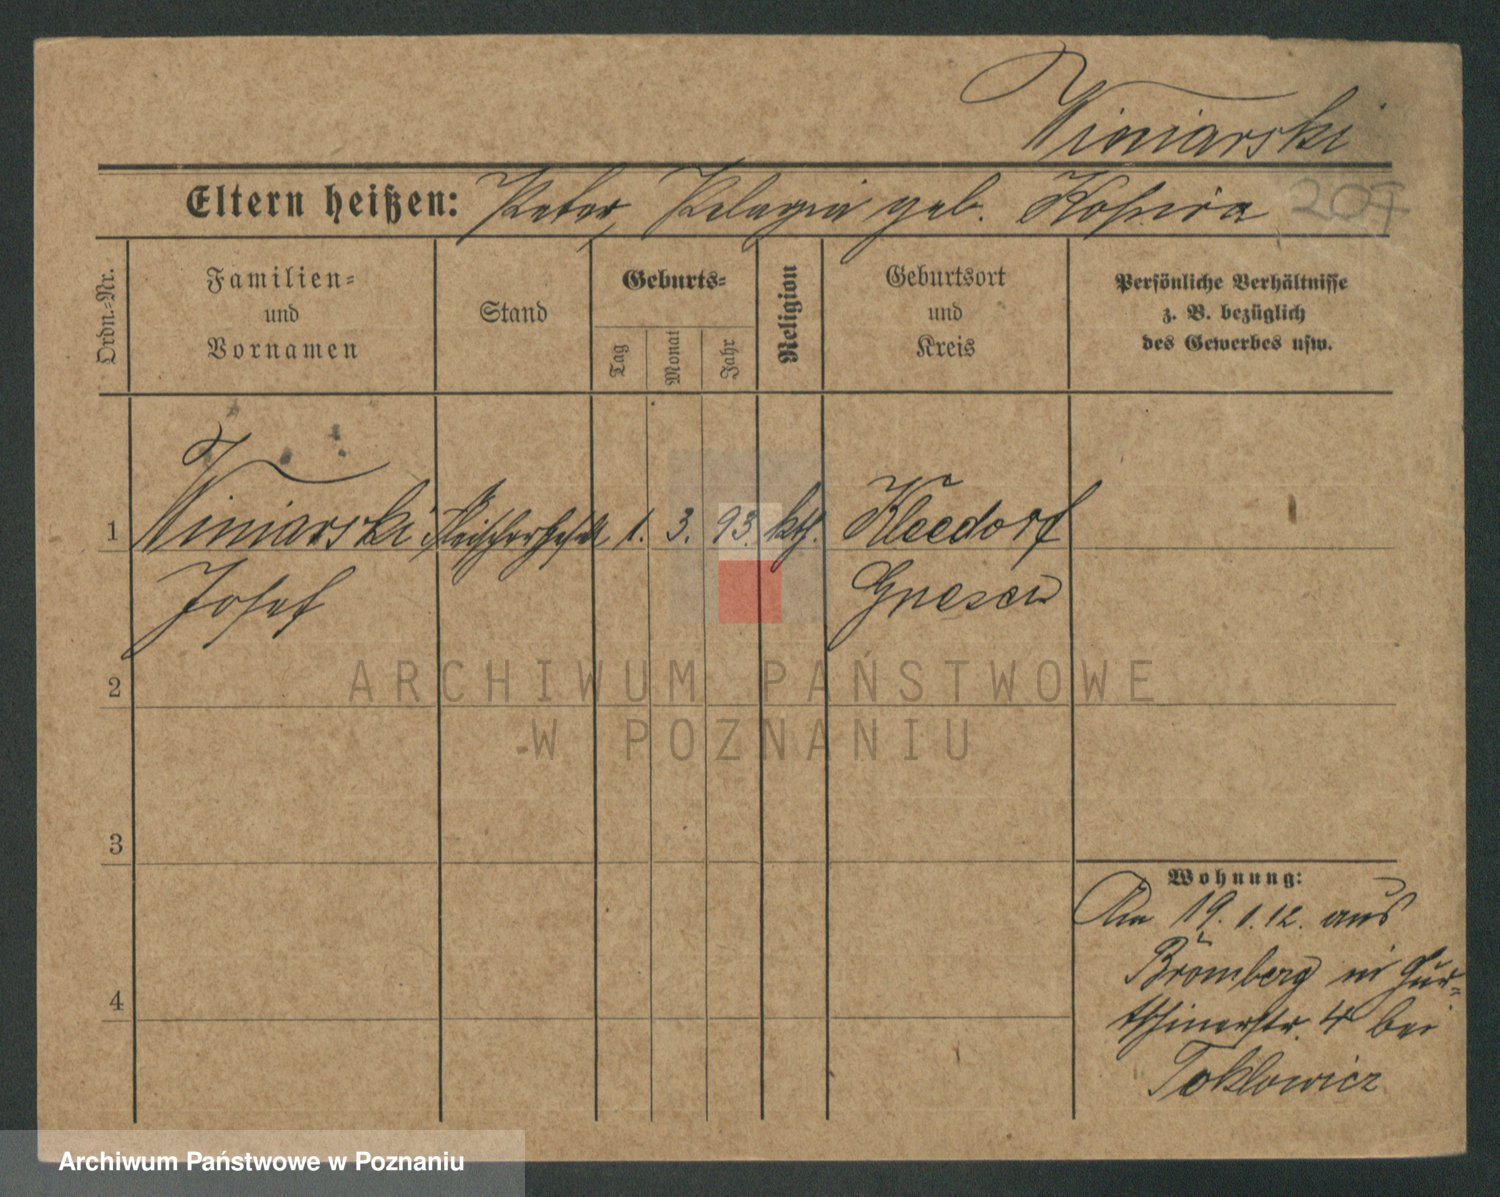 Winiarski
Eltern heißen: Peter, Pelagia geb. Kosira 207
Ordn.=Nr.
Familien=
und
Vornamen
Stand
Geburts=
Tag
Monat
Jahr
Religion
Geburtsort
und
Kreis
Persönliche Verhältnisse
z. B. bezüglich
des Gewerbes usw.
1 Winiarski Fleischergesell 1. 3. 93. kth. Kleedorf
Josef Gnesen
2
3
4
Wohnung:
Am 19. 1. 12. aus
Bromberg in Gur=
tschinerstr. 4 bei
Toklowicz
ARCHIWUM PAŃSTWOWE
W POZNANIU
Archiwum Państwowe w Poznaniu